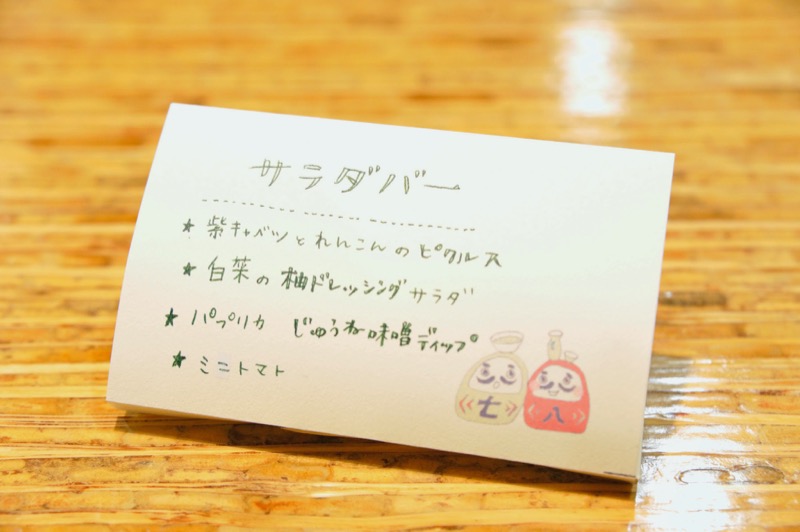 サラダバー
★ 紫キャベツとれんこんのピクルス
★ 白菜の柚ドレッシングサラダ
★ パプリカ じゅうね味噌ディップ
★ ミニトマト
七 八